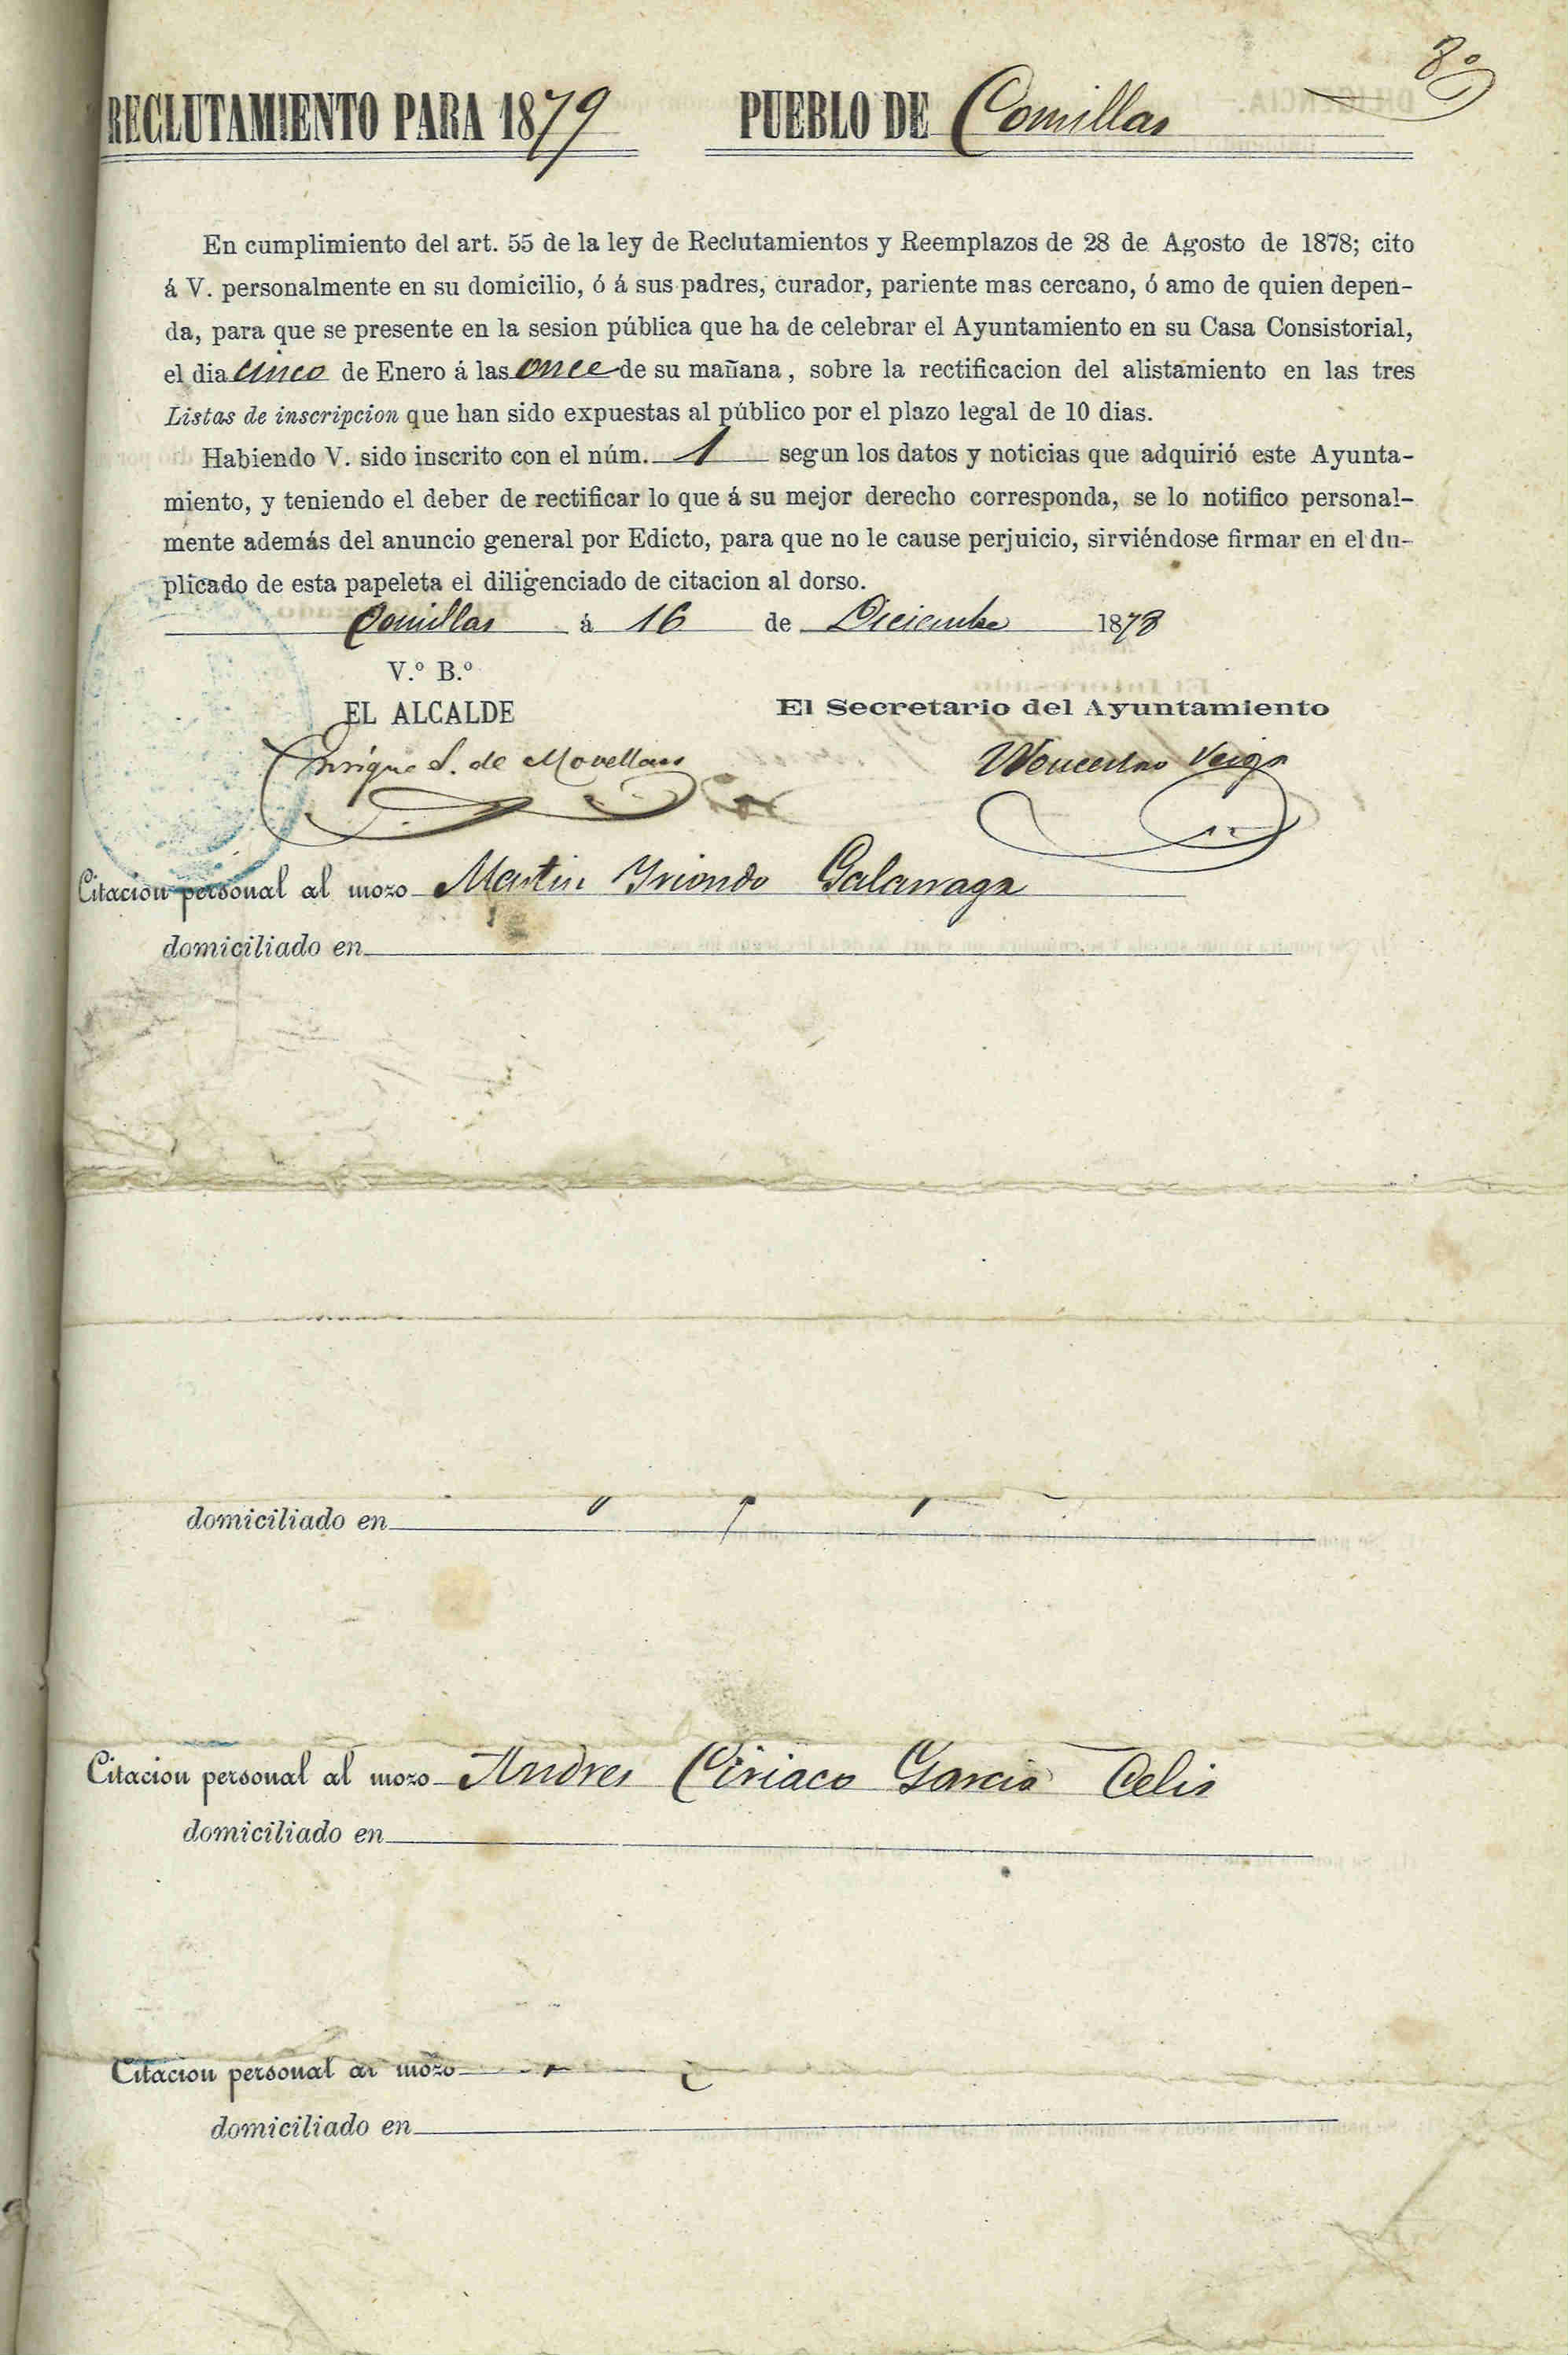 8º
RECLUTAMIENTO PARA 1879 PUEBLO DE Comillas
En cumplimiento del art. 55 de la ley de Reclutamientos y Reemplazos de 28 de Agosto de 1878; cito
á V. personalmente en su domicilio, ó á sus padres, curador, pariente mas cercano, ó amo de quien depen-
da, para que se presente en la sesion pública que ha de celebrar el Ayuntamiento en su Casa Consistorial,
el dia cinco de Enero á las once de su mañana, sobre la rectificacion del alistamiento en las tres
Listas de inscripcion que han sido expuestas al público por el plazo legal de 10 dias.
Habiendo V. sido inscrito con el núm. 1 segun los datos y noticias que adquirió este Ayunta-
miento, y teniendo el deber de rectificar lo que á su mejor derecho corresponda, se lo notifico personal-
mente además del anuncio general por Edicto, para que no le cause perjuicio, sirviéndose firmar en el du-
plicado de esta papeleta el diligenciado de citacion al dorso.
Comillas á 16 de Diciembre 1878
V.º B.º
EL ALCALDE El Secretario del Ayuntamiento
Enrique S. de Movellan Wenceslao Veiga
Citacion personal al mozo Martin Yriondo Galarraga
domiciliado en
domiciliado en
Citacion personal al mozo Andres Ciriaco Garcia Celis
domiciliado en
Citacion personal al mozo
domiciliado en